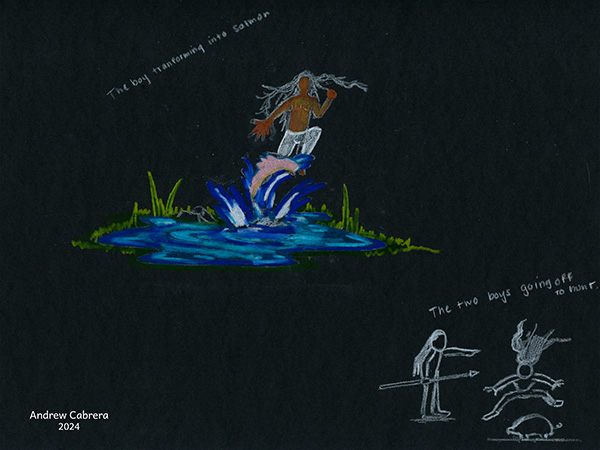 The boy tranforming into salmon
The two boys going off
to hunt.
Andrew Cabrera
2024